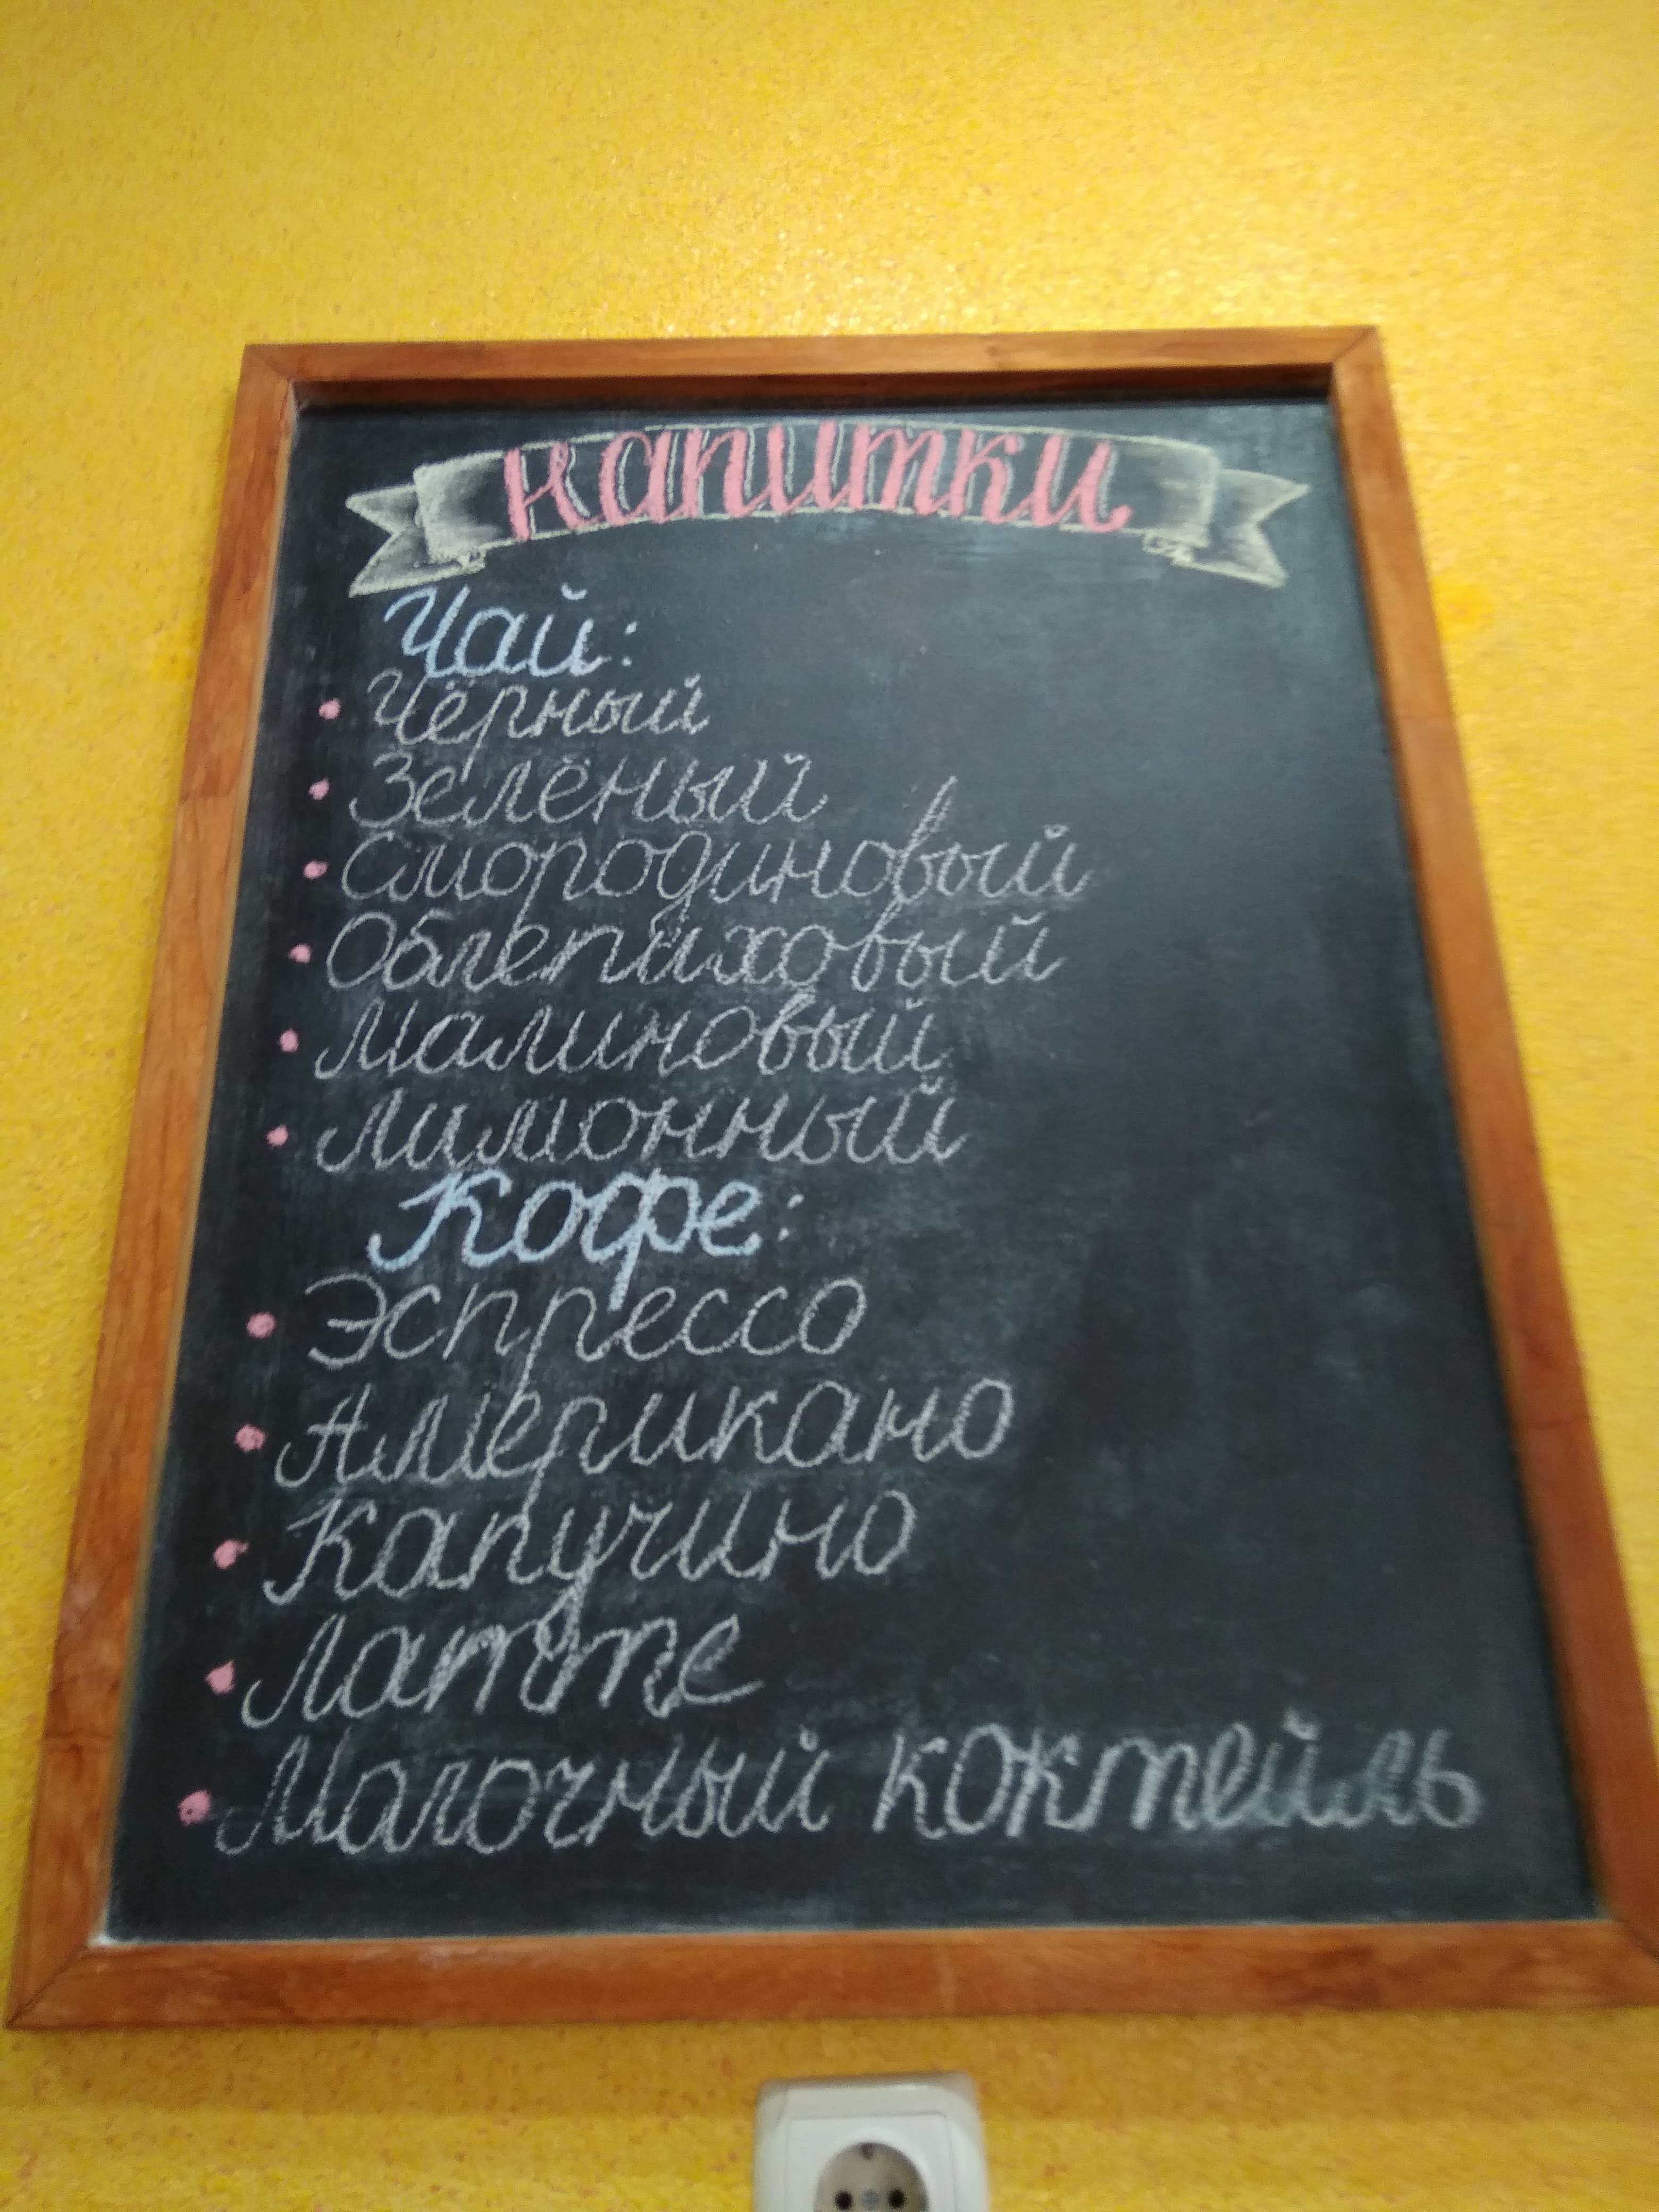 напитки
Чай:
• Чёрный
• Зелёный
• Смородиновый
• Облепиховый
• Малиновый
• Лимонный
Кофе:
• Эспрессо
• Американо
• Капучино
• Латте
• Молочный коктейль